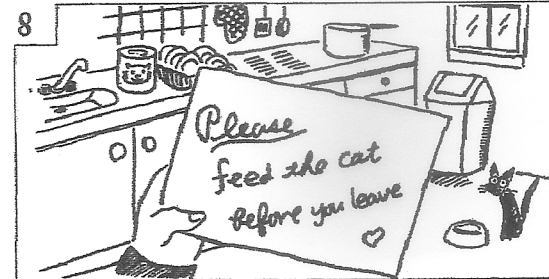 8
Please
feed the cat
Before you leave